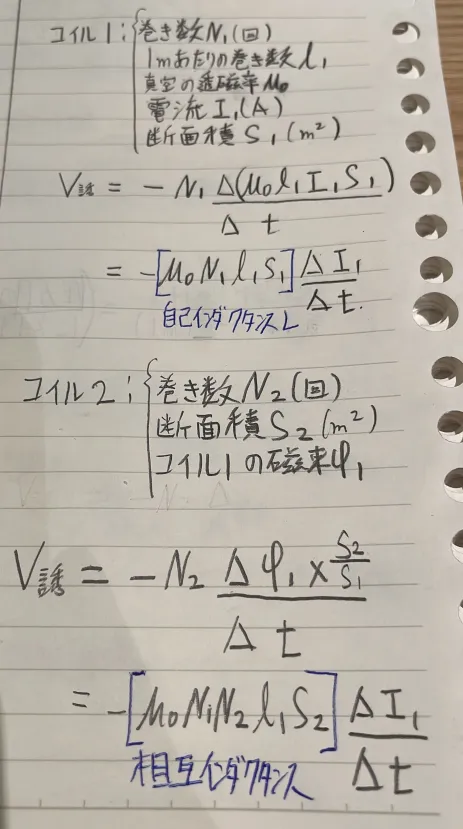 コイル1:{巻き数N₁(回)
1mあたりの巻き数l₁
真空の透磁率μ₀
電流I₁(A)
断面積S₁(m²)
V誘 = -N₁ Δ(μ₀l₁I₁S₁)/Δt
= -[μ₀N₁l₁S₁] ΔI₁/Δt.
自己インダクタンスL
コイル2:{巻き数N₂(回)
断面積S₂(m²)
コイル1の磁束φ₁
V誘 = -N₂ Δφ₁×S₂/S₁/Δt
= -[μ₀N₁N₂l₁S₂] ΔI₁/Δt
相互インダクタンス